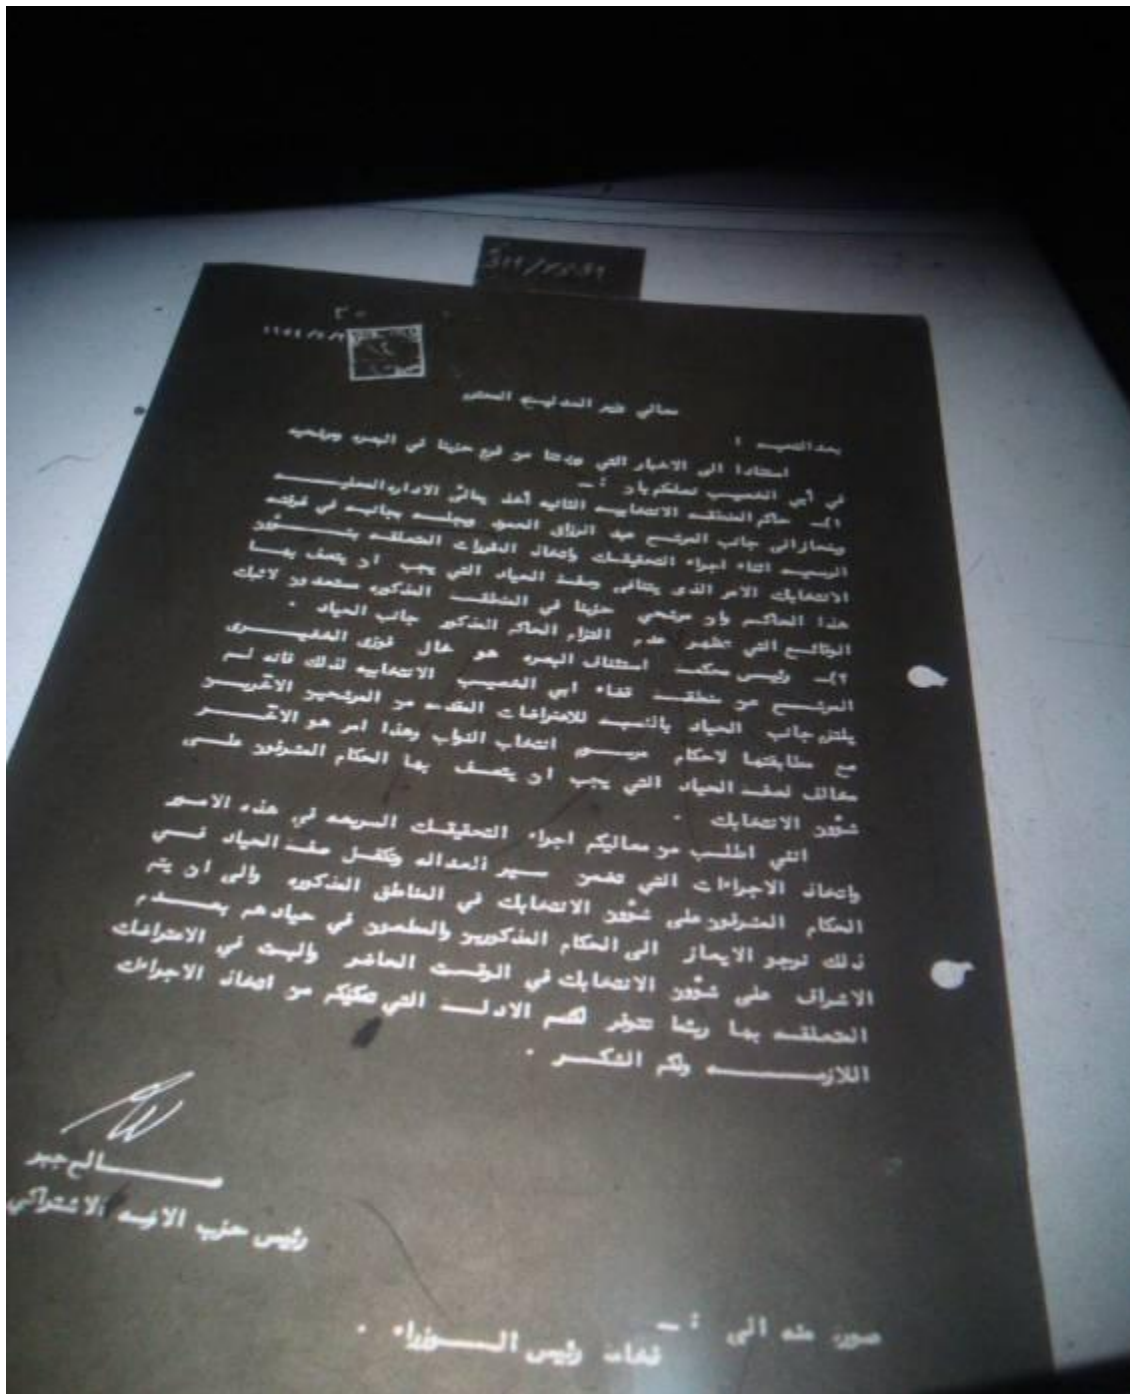 ٣٤٩/٢٤٥٩
٢٠
معالي وزير العدليه المحترم
بعد التحيه :
استنادا الى الاخبار التي وردتنا من فرع حزبنا في البصره ومرشحيه
في أبي الخصيب نعلمكم بان :ـ
١ـ حاكم المنطقه الانتخابيه الثانيه أخذ يمالئ الاداره المحليه
وينحاز الى جانب المرشح عبد الرزاق الحمود ويجلسه بجانبه في غرفته
الرسميه اثناء اجراء التحقيقات واتخاذ المقررات المتعلقه بشؤون
الانتخابات الامر الذى يتنافى وصفة الحياد التي يجب ان يتصف بها
هذا الحاكم وان مرشحي حزبنا في المنطقه المذكوره مستعدون لاثبات
الوقائع التي تظهر عدم التزام الحاكم المذكور جانب الحياد .
٢ـ رئيس محكمة استئناف البصره هو خال فوزى الخضيرى
المرشح عن منطقة قضاء ابي الخصيب الانتخابيه لذلك فانه لم
يلتزم جانب الحياد بالنسبه للاعتراضات المقدمه من المرشحين الآخرين
مع مطابقتها لاحكام مرسوم انتخاب النواب وهذا امر هو الآخر
مخالف لصفة الحياد التي يجب ان يتصف بها الحكام المشرفون على
شؤون الانتخابات .
انني اطلب من معاليكم اجراء التحقيقات السريعه في هذه الامور
واتخاذ الاجراءات التي تضمن سير العداله وتكفل صفة الحياد في
الحكام المشرفون على شؤون الانتخابات في المناطق المذكوره والى ان يتم
ذلك نرجو الايعاز الى الحكام المذكورين والمطعون في حيادهم بعدم
الاشراف على شؤون الانتخابات في الوقت الحاضر والبت في الاعتراضات
المتعلقه بها ريثما تتوفر لكم الادله التي تمكنكم من اتخاذ الاجراءات
اللازمه ولكم الشكر .
صالح جبر
رئيس حزب الامه الاشتراكي
صوره منه الى :ـ
فخامة رئيس الوزراء .